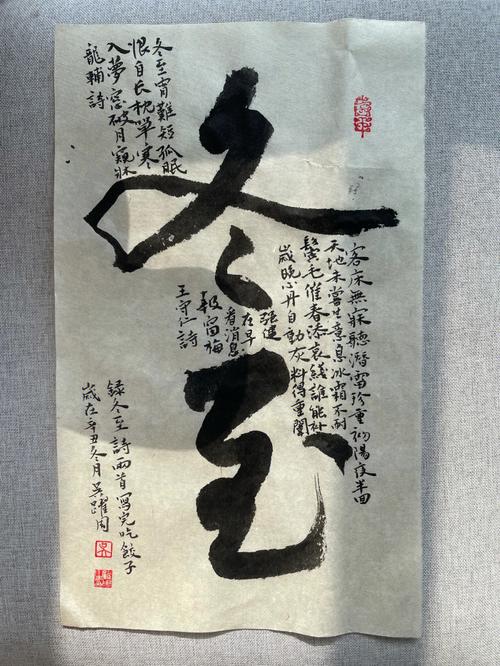 冬至
冬至宵難短孤眠
恨自长枕單寒
入夢窓破月窺牀
龍輔詩
客床無寐聽潛雷珍重初陽夜半回
天地未嘗生意息冰霜不耐
鬢毛催春添袞線誰能補
歲晚心丹自動灰料得重闈
強健
在早
看消息
報窗梅
王守仁詩
錄冬至詩兩首寫完吃餃子
歲在辛丑冬月吴躍